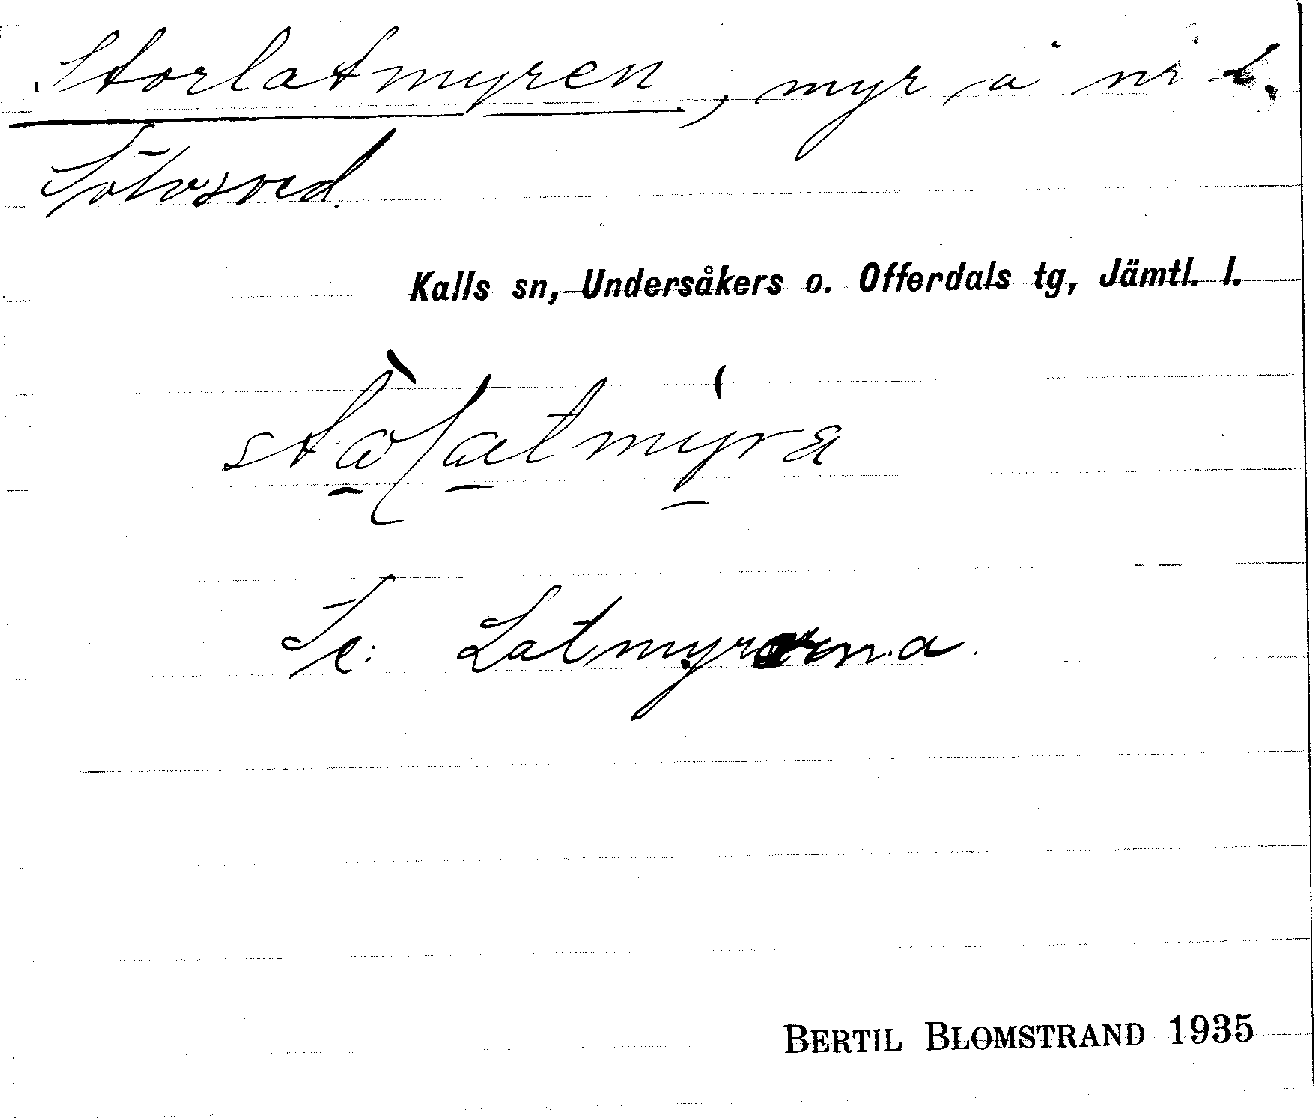 Storlatmyren, myr å nr 1.
Sölvsved.
Kalls sn, Undersåkers o. Offerdals tg, Jämtl. l.
Se: Latmyrarna.
BERTIL BLOMSTRAND 1935